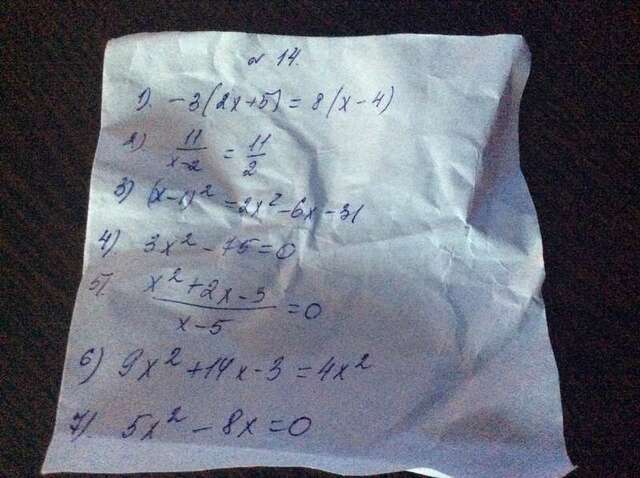 № 14.
1). -3(2x+5) = 8(x-4)
2) 11/(x-2) = 11/2
3) (x-1)² = 2x² - 6x - 31
4) 3x² - 75 = 0
5). (x² + 2x - 3)/(x-5) = 0
6) 9x² + 14x - 3 = 4x²
7) 5x² - 8x = 0